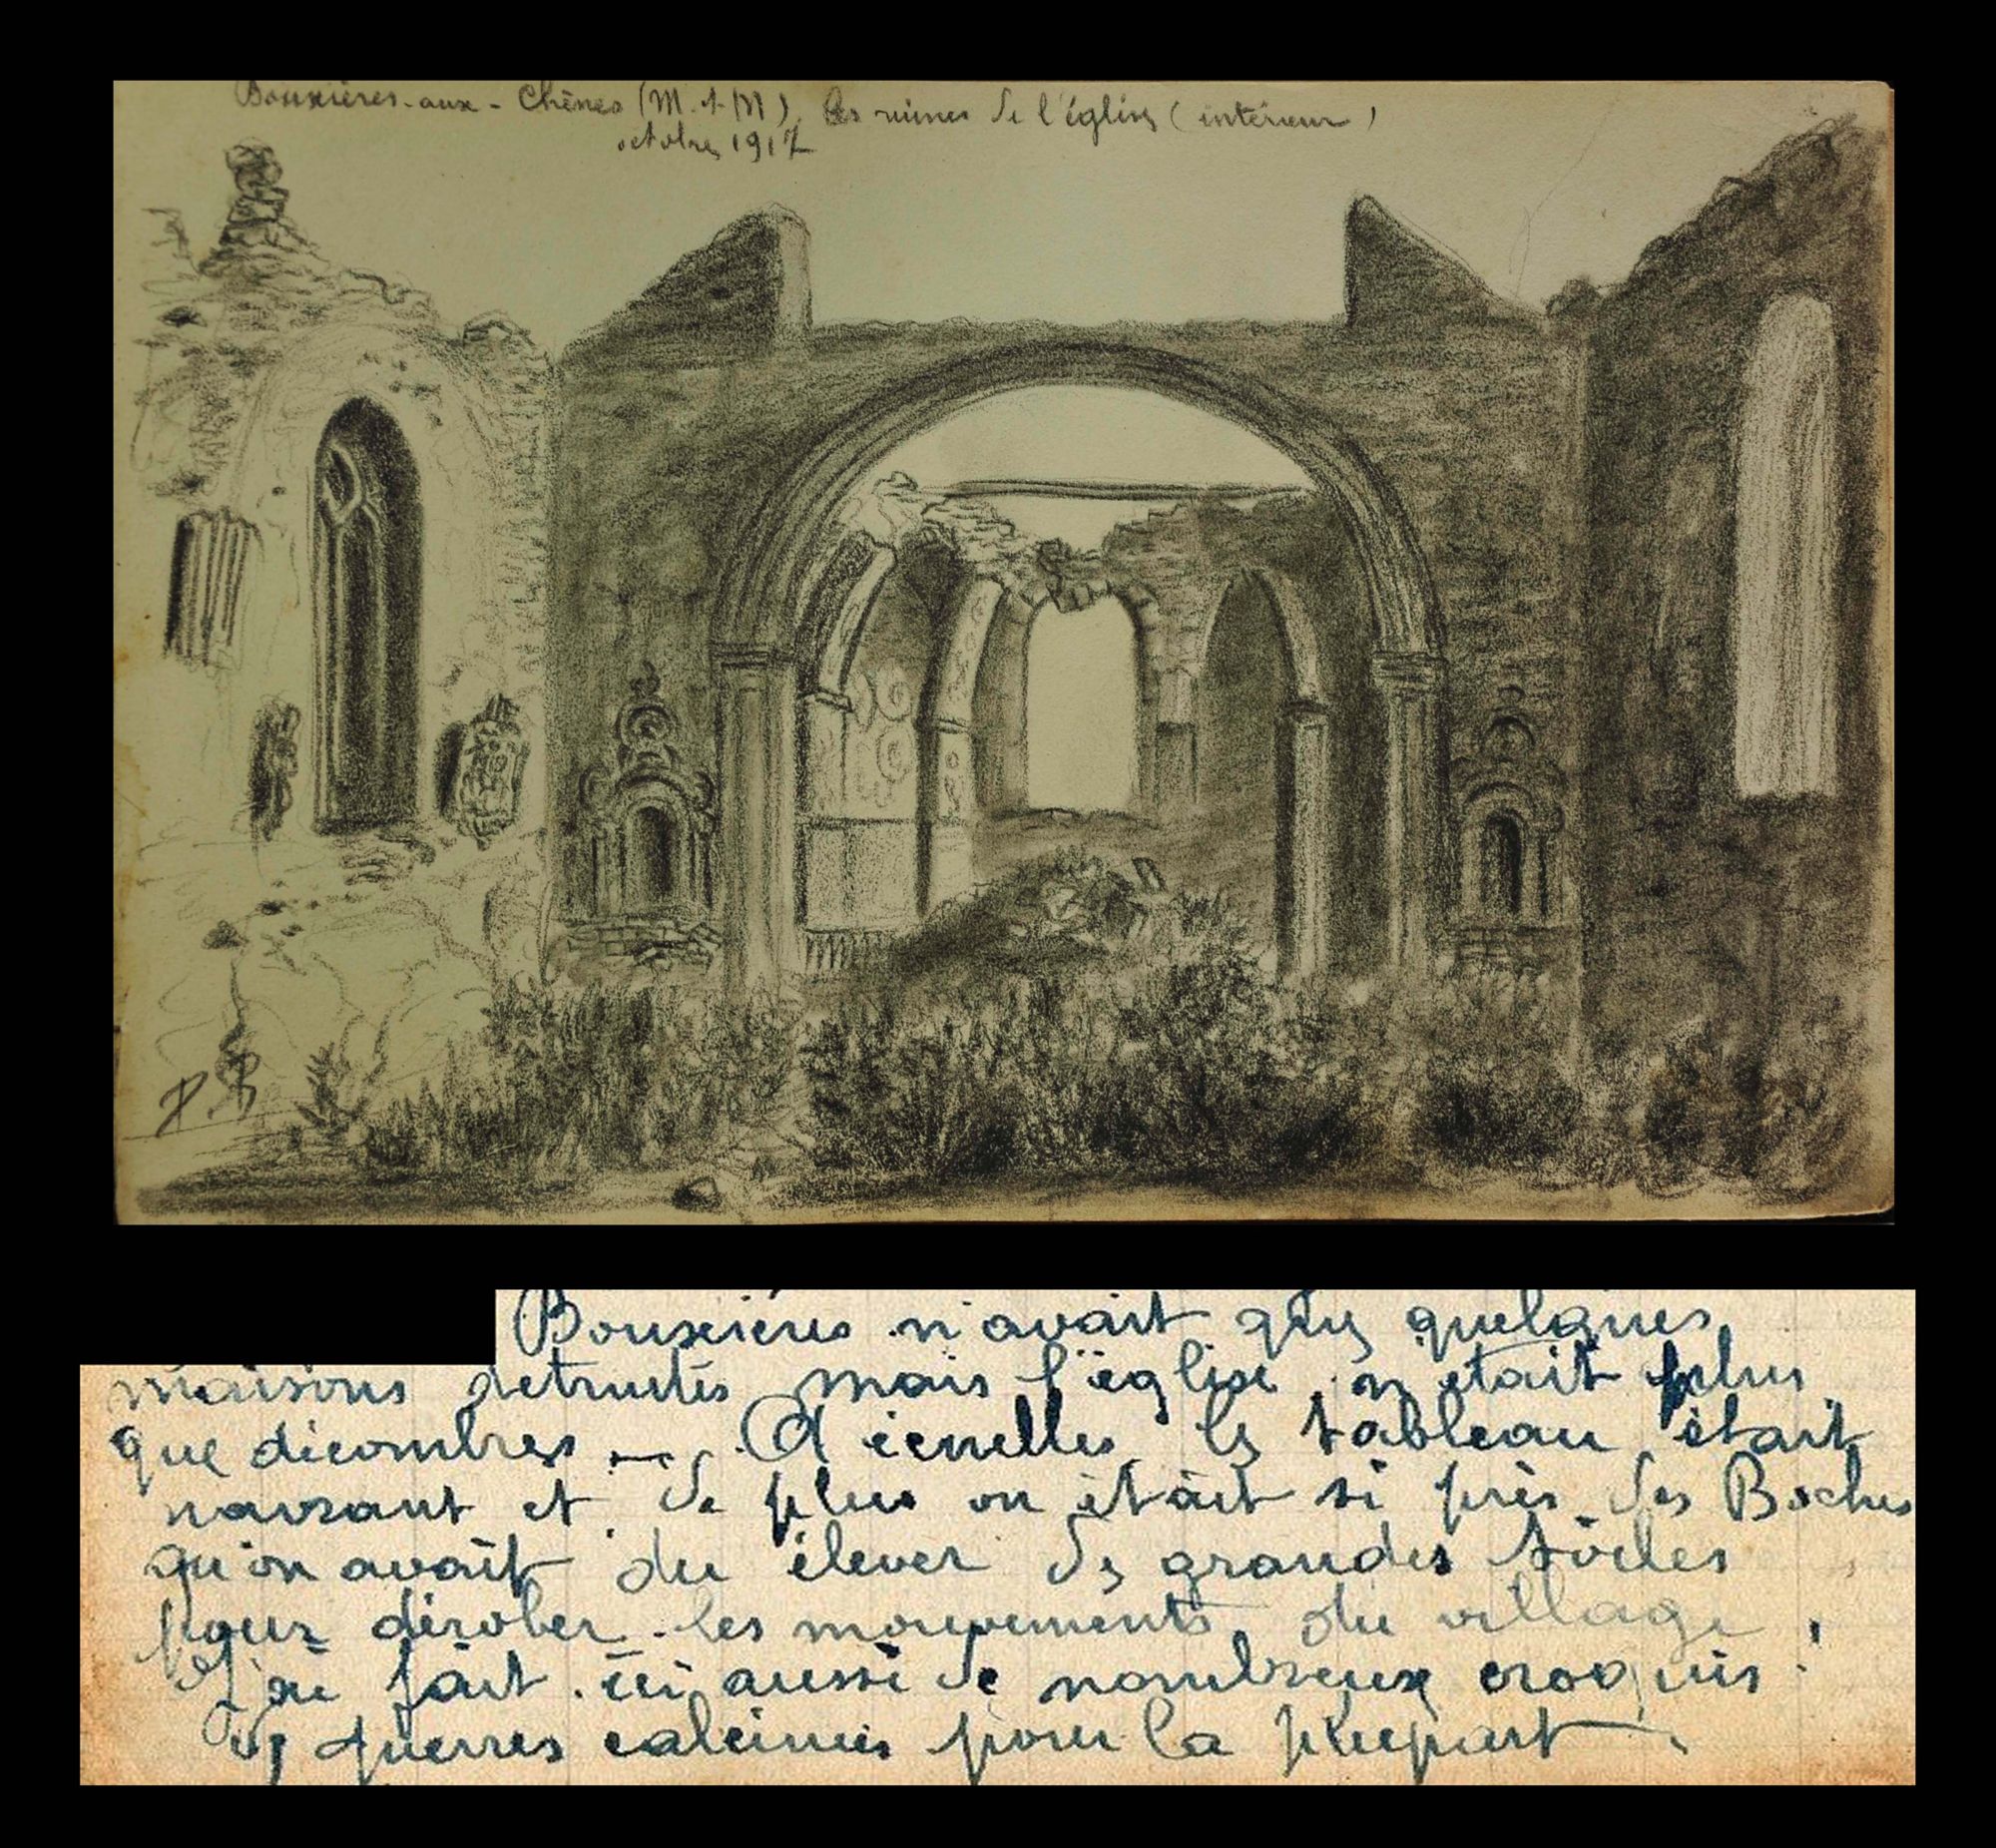 Bouxières-aux-Chênes (M.&M). Les ruines de l'église (intérieur)
octobre 1917
Bouxières n'avait que quelques
maisons detruites mais l'église n'etait plus
que décombres... le tableau était
navrant et de plus on était si près des Boches
qu'on avait du élever de grandes toiles
pour dérober les mouvements du village,
J'ai fait ici aussi de nombreux croquis !
de pierres calcinées pour la plupart